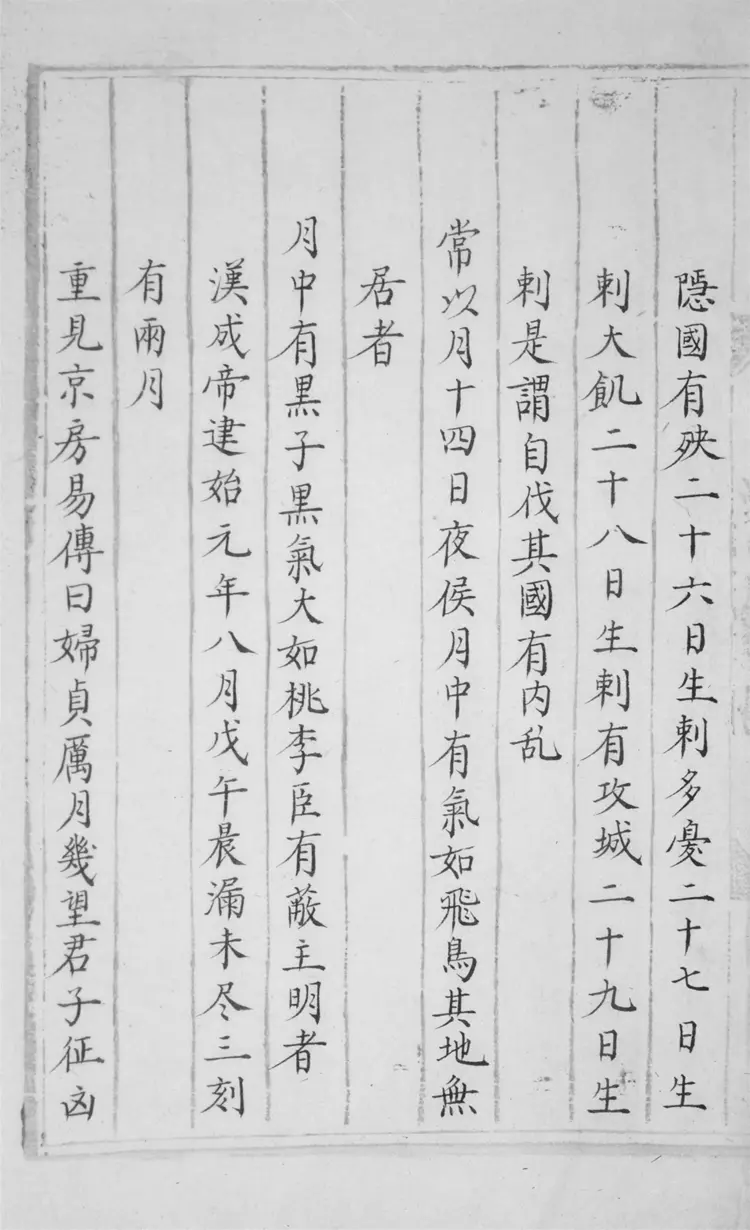 隱國有殃二十六日生刺多憂二十七日生
刺大飢二十八日生刺有攻城二十九日生
刺是謂自伐其國有内乱
常以月十四日夜侯月中有氣如飛鳥其地無
居者
月中有黒子黒氣大如桃李臣有蔽主明者
漢成帝建始元年八月戊午晨漏未尽三刻
有兩月
重見京房易傳曰婦貞厲月幾望君子征凶